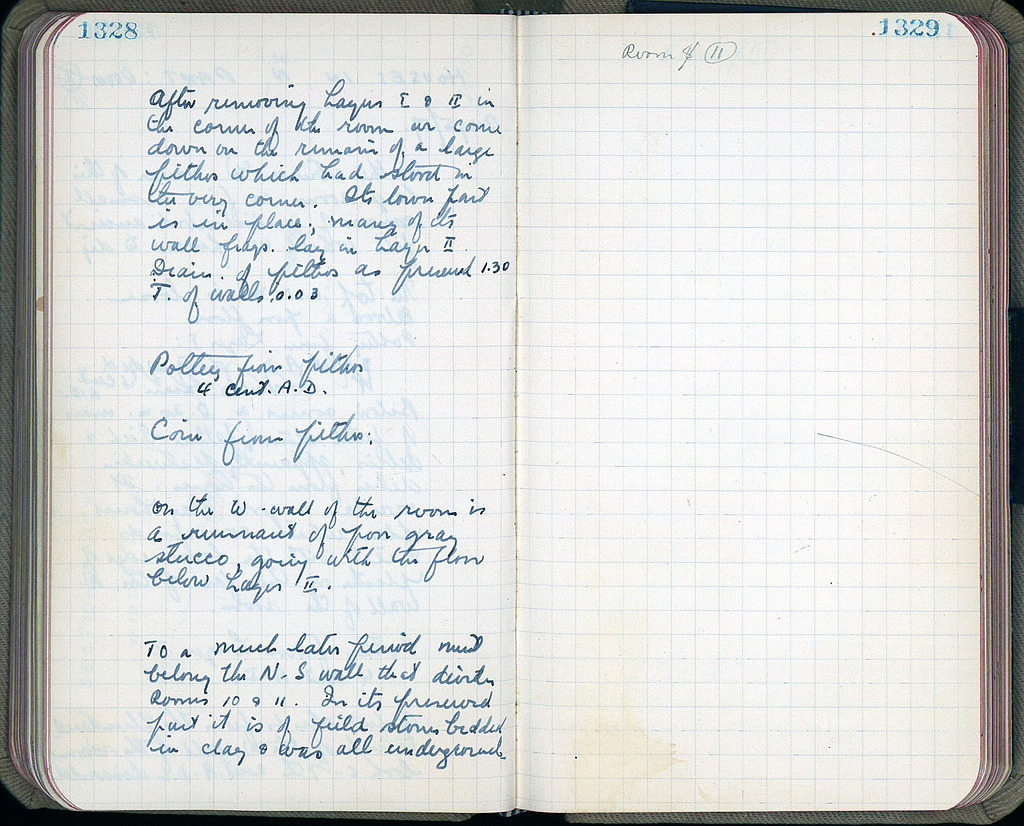 1328
After removing Layers I & II in
the corner of the room we come
down on the remains of a large
pithos which had stood in
the very corner. Its lower part
is in place; many of its
wall frags. lay in Layer II.
Diam. of pithos as preserved 1.30
T. of walls 0.03
Pottery from pithos
4 cent. A.D.
Coin from pithos:
On the W-wall of the room is
a remnant of poor gray
stucco, going with the floor
below Layer II.
To a much later period must
belong the N-S wall that divides
Rooms 10 & 11. In its preserved
part it is of field stones bedded
in clay & was all underground.
1329
Room 11